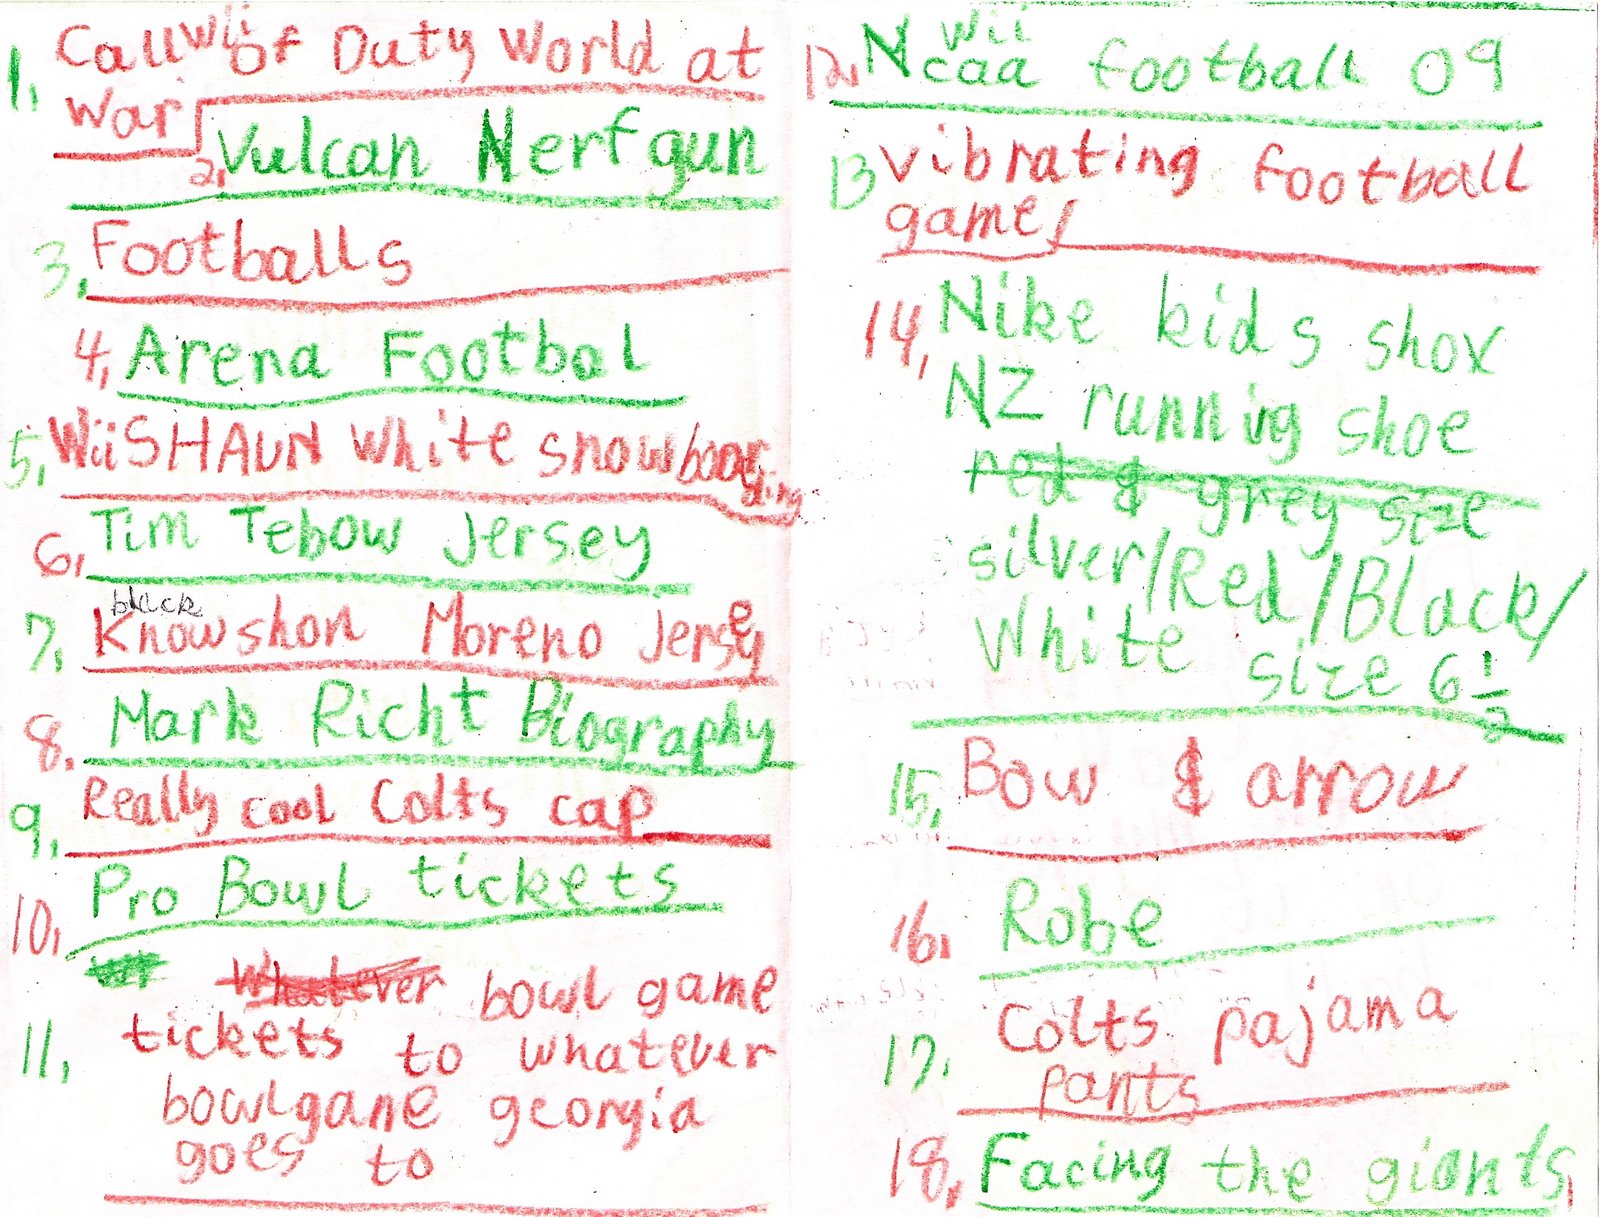 1. Call Wii of Duty World at
War
2. Vulcan Nerf gun
3. Footballs
4. Arena Footbal
5. Wii SHAUN White snowboarding
6. Tim Tebow Jersey
black
7. Knowshon Moreno Jersey
8. Mark Richt Biography
9. Really cool Colts cap
10. Pro Bowl tickets
Whatever bowl game
11. tickets to whatever
bowlgane georgia
goes to
Wii
12. Ncaa football 09
13 vibrating football
game
14. Nike kids shox
NZ running shoe
red & grey size
silver/Red/Black/
White size 6 1/2
15. Bow & arrow
16. Robe
17. Colts pajama
pants
18. Facing the giants